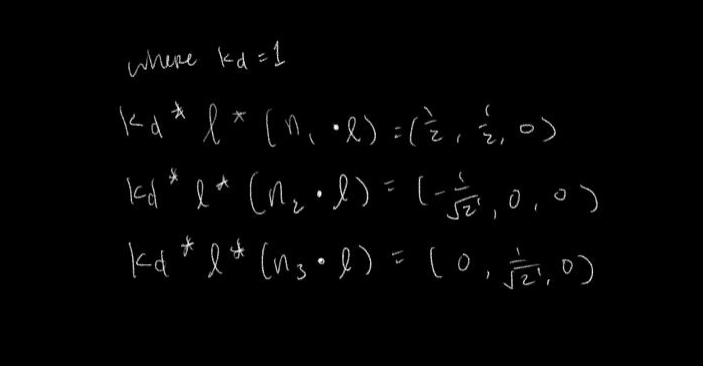 where kd = 1
kd * l * (n₁ · l) = (1/2, 1/2, 0)
kd * l * (n₂ · l) = (-1/√2, 0, 0)
kd * l * (n₃ · l) = (0, 1/√2, 0)